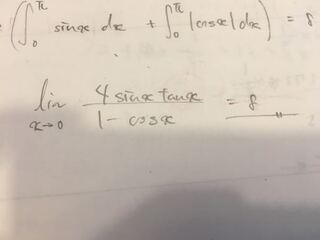 (∫₀^π sinx dx + ∫₀^π |cosx| dx) = 8
lim x→0 4 sinx tanx / 1 - cosx = 8